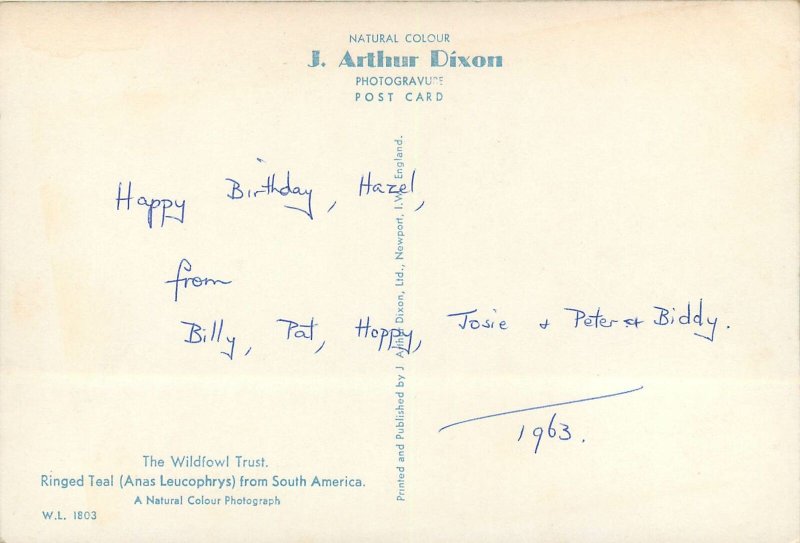 NATURAL COLOUR
J. Arthur Dixon
PHOTOGRAVURE
POST CARD
Happy Birthday, Hazel,
from
Billy, Pat, Hoppy, Josie + Peter & Biddy.
1963.
Printed and Published by J Arthur Dixon, Ltd., Newport, I.W., England.
The Wildfowl Trust.
Ringed Teal (Anas Leucophrys) from South America.
A Natural Colour Photograph
W.L. 1803